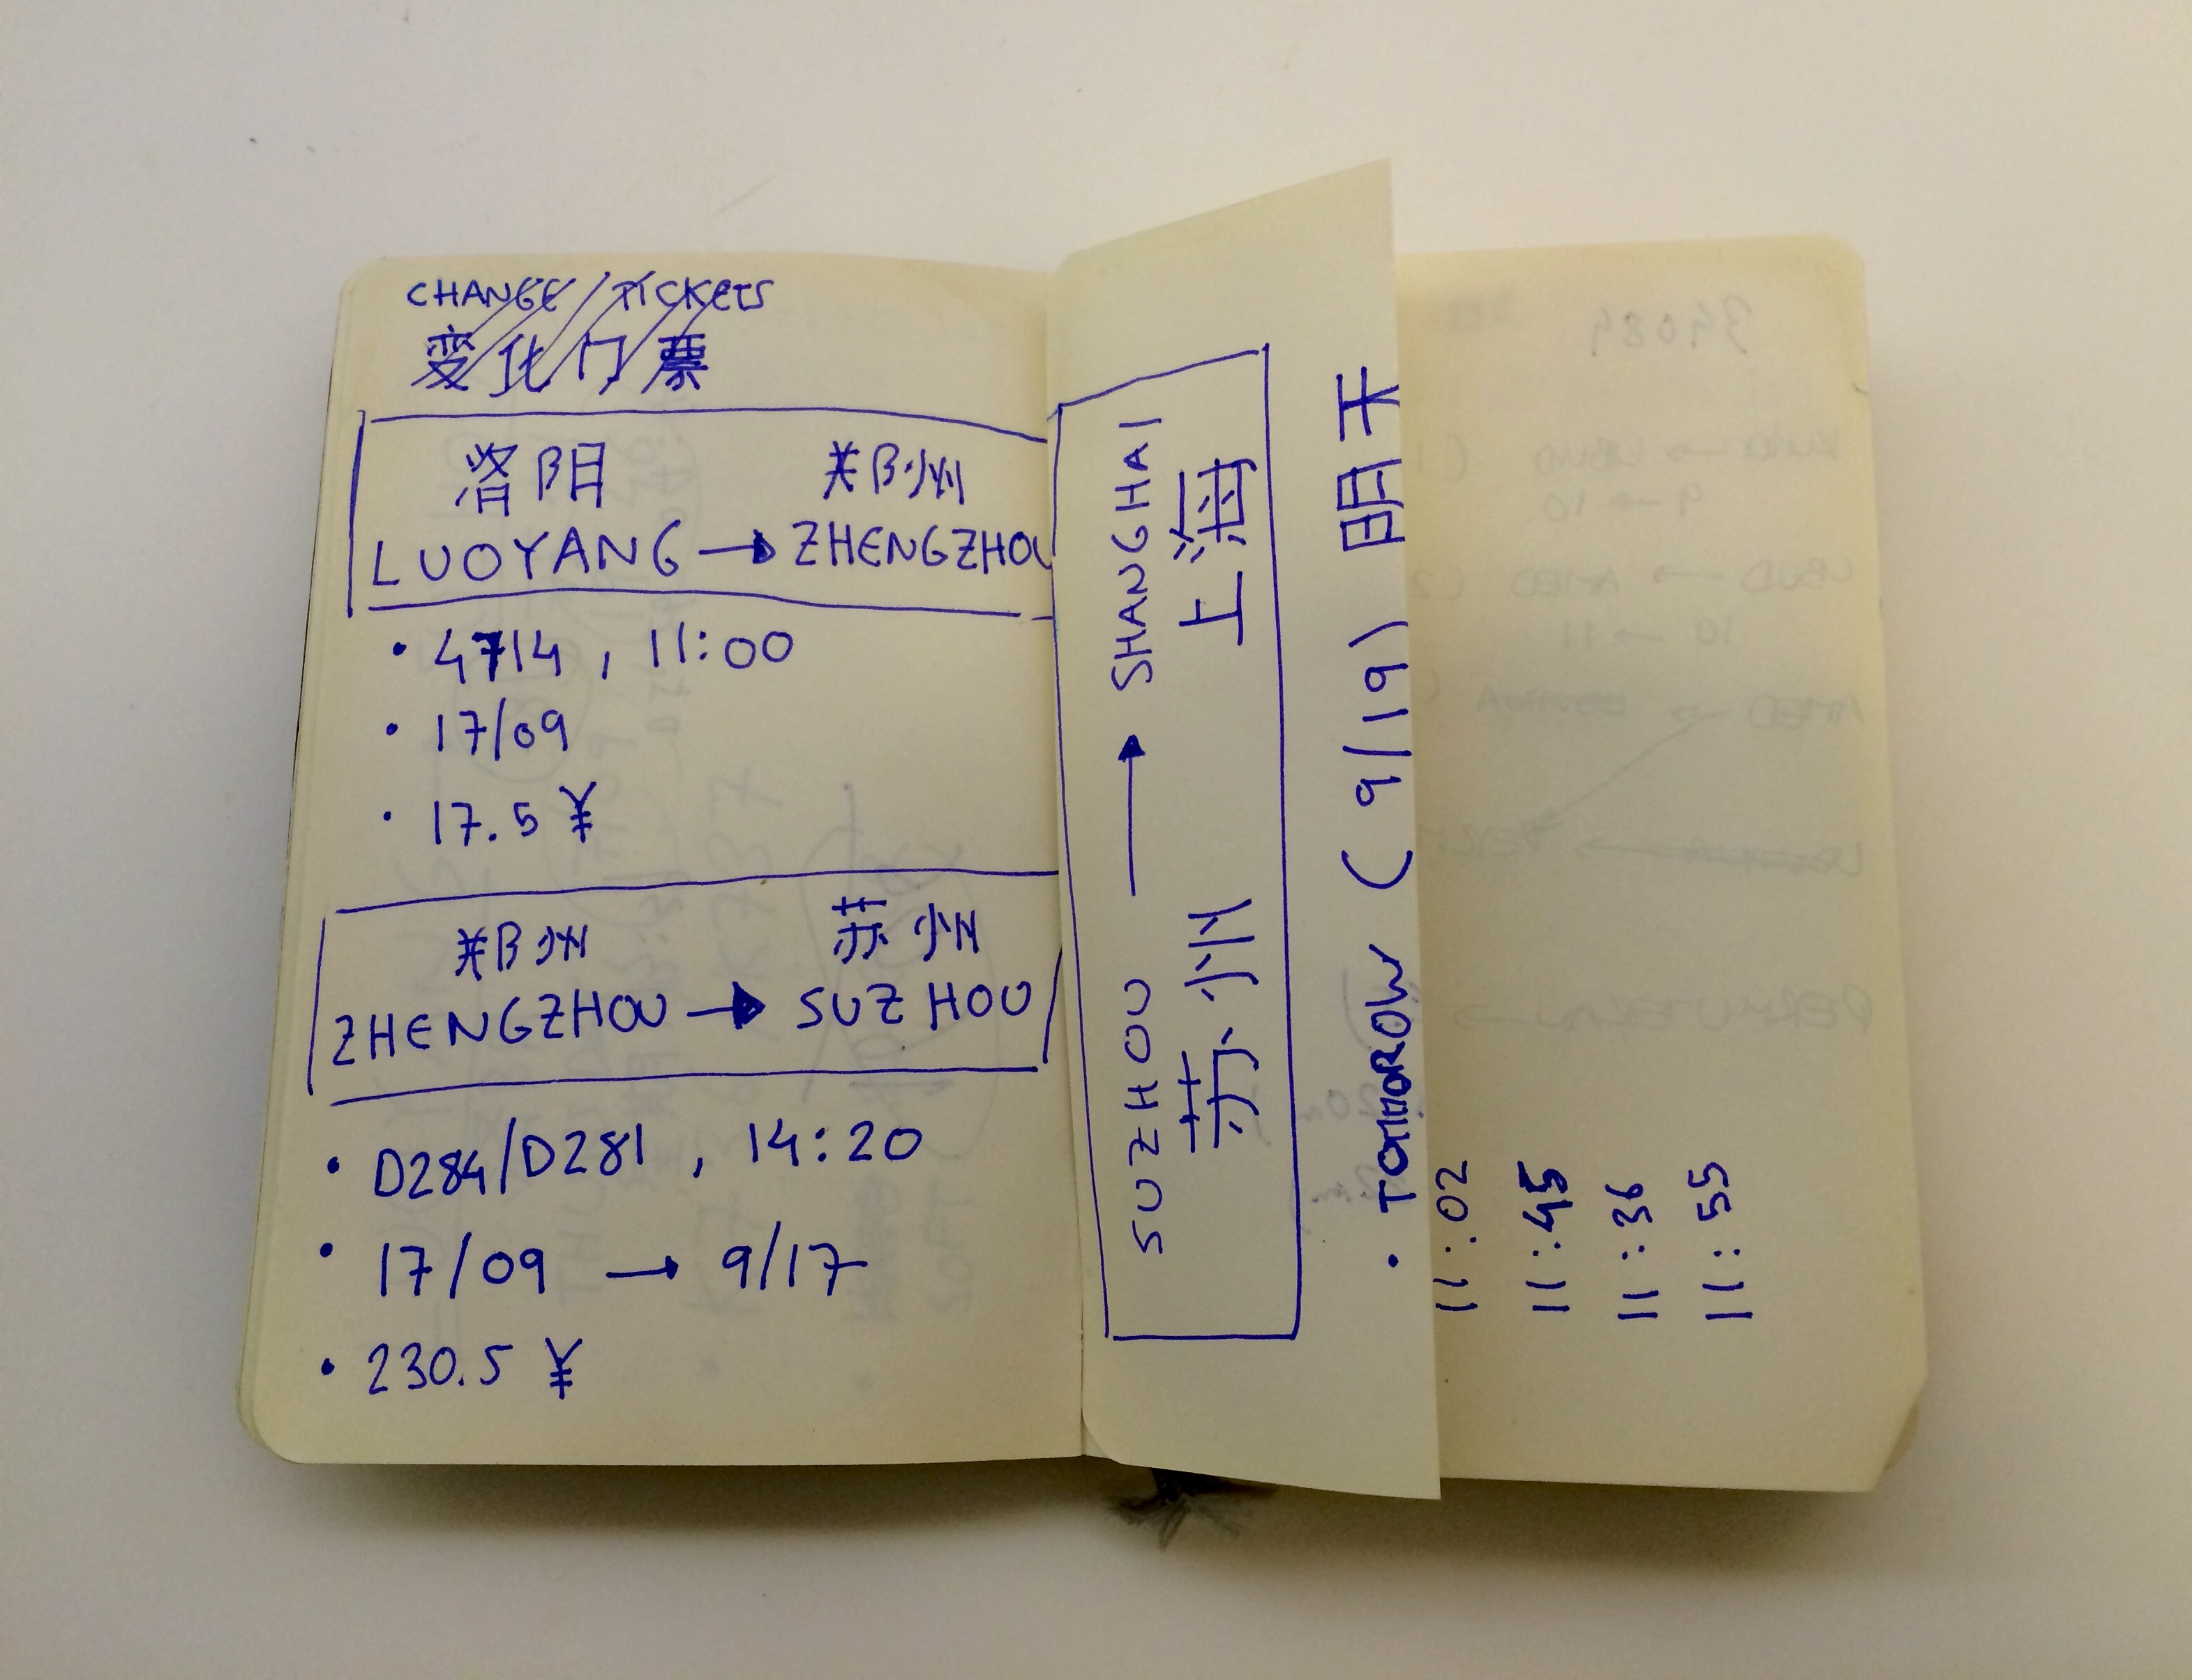 CHANGE / TICKETS
变化门票
洛阳 郑州
LUOYANG → ZHENGZHOU
• 4714 , 11:00
• 17/09
• 17.5 ¥
郑州 苏州
ZHENGZHOU → SUZHOU
• D284/D281 , 14:20
• 17/09 → 9/17
• 230.5 ¥
SUZHOU → SHANGHAI
苏州 上海
• TOMOROW (9/19) 明天
11:02
11:45
11:36
11:55